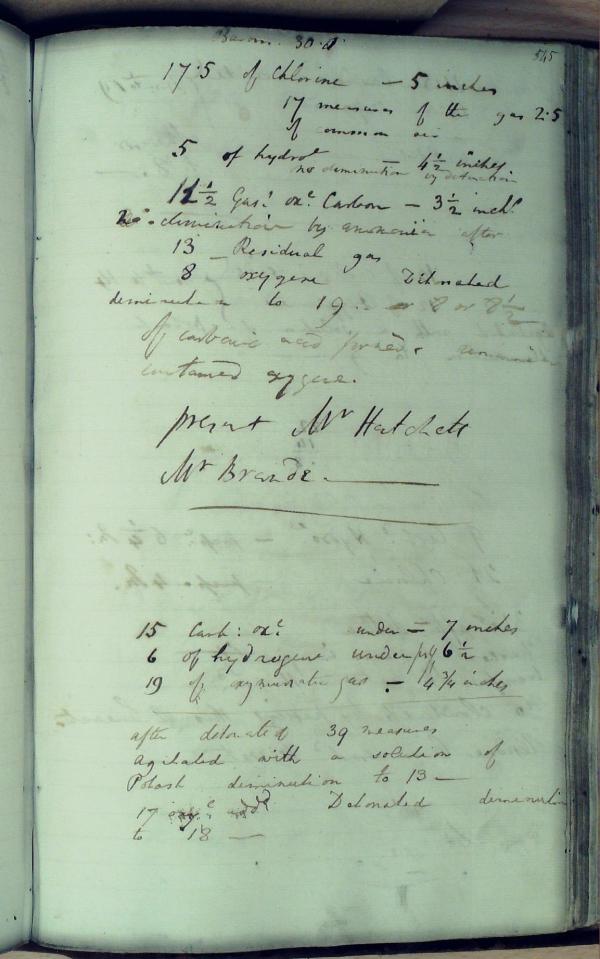 545
Barom. 30.1
17.5 of Chlorine — 5 inches
17 measures of the gas 2.5
of common air
5 of hydroe — 4½ inches
no diminution by detonation
11½ Gas: oxe Carbon — 3½ inchs
No diminution by ammonia after
13 — Residual gas
8 oxygene Detonated
diminution to 19 : or 8 or 8½
of carbonic acid formed &
contained oxygene.
present Mr Hatchett
Mr Brande. —
15 Carb: oxe under = 7 inches
6 of hydrogene under 6½
19 of oxymuriatic gas — 4 3/4 inches
after detonated 39 measures
agitated with a solution of
Potash diminution to 13 —
17 oxy: add Detonated diminution
to 18 —